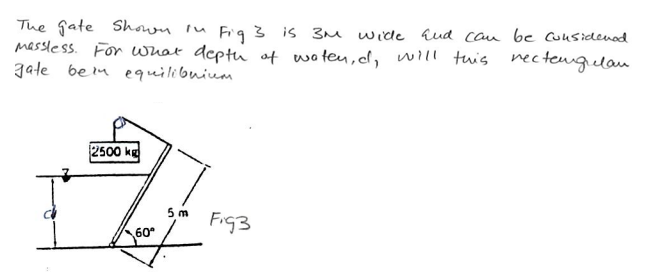 The gate shown in Fig 3 is 3m wide and can be considered
massless. For what depth of water, d, will this rectangular
gate be in equilibrium
2500 kg
d
5 m
60°
Fig3